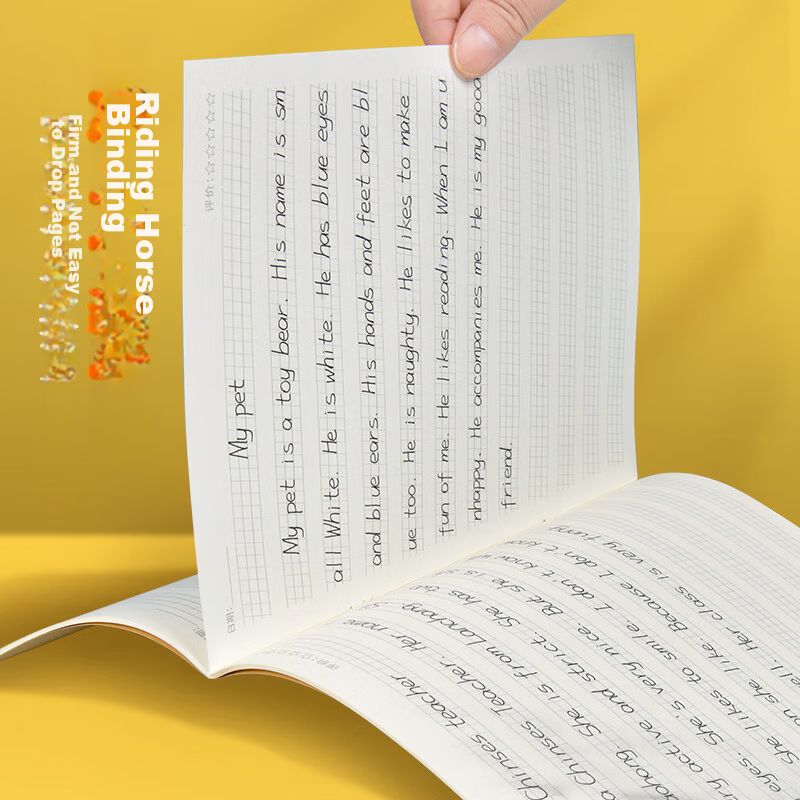 Riding Horse
Binding
Firm and Not Easy
to Drop Pages
评价:
日期:
My pet
My pet is a toy bear. His name is sm
all White. He is white. He has blue eyes
and blue ears. His hands and feet are bl
ue too. He is naughty. He likes to make
fun of me. He likes reading. When I am u
nhappy. He accompanies me. He is my good
friend.
评价:
Chinses teacher
a Chinses Teacher. Her name
She is from Lanchong.
active and strict. She has two
eyes. She's very nice. But she is
She likes to smile. I don't know
she like. Because I don't know
Her class is very funny